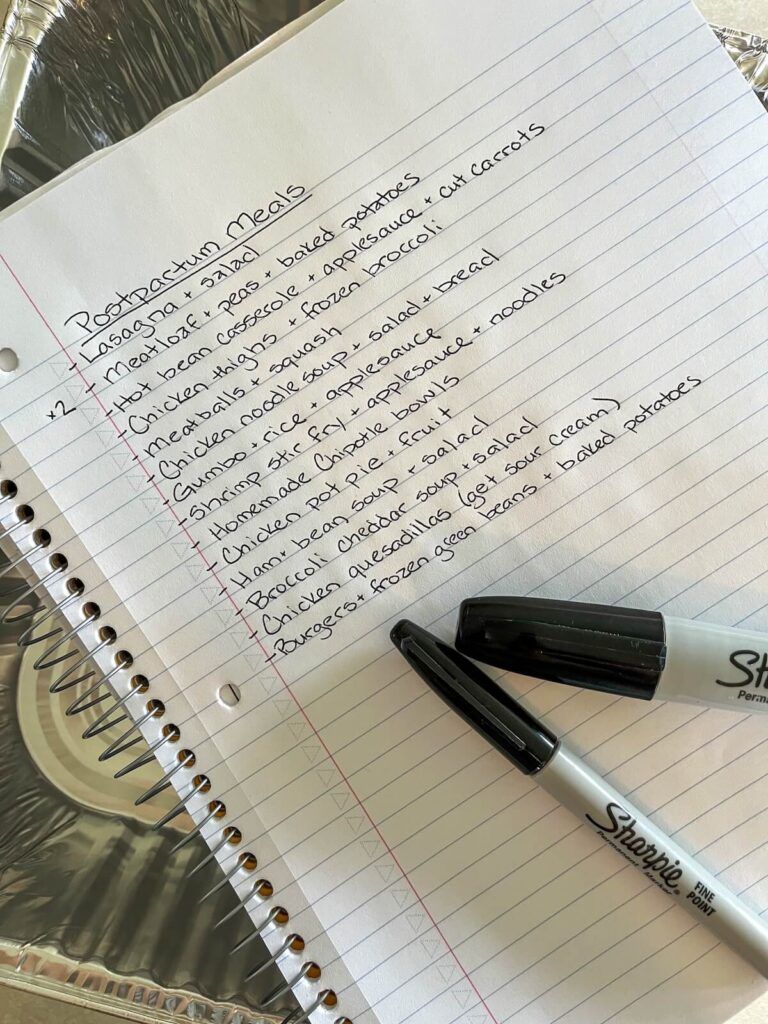 Postpartum Meals
- Lasagna + salad
x2 - Meatloaf + peas + baked potatoes
- Hot bean casserole + applesauce + cut carrots
- Chicken thighs + frozen broccoli
- Meatballs + squash
- Chicken noodle soup + salad + bread
- Gumbo + rice + applesauce
- Shrimp stir fry + applesauce + noodles
- Homemade Chipotle bowls
- Chicken pot pie + fruit
- Ham + bean soup + salad
- Broccoli cheddar soup + salad
- Chicken quesadillas (get sour cream)
- Burgers + frozen green beans + baked potatoes
Sharpie
Permanent Marker
FINE
POINT